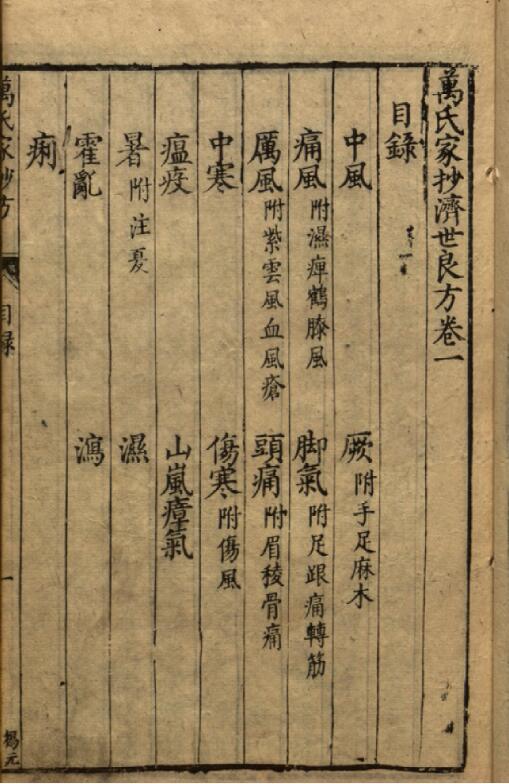 萬氏家抄濟世良方卷一
目錄
中風　厥附手足麻木
痛風附濕痺鶴膝風　脚氣附足跟痛轉筋
厲風附紫雲風血風瘡　頭痛附眉稜骨痛
中寒　傷寒附傷風
瘟疫　山嵐瘴氣
暑附注夏　濕
霍亂　瀉
痢
萬氏家抄方　目錄　一